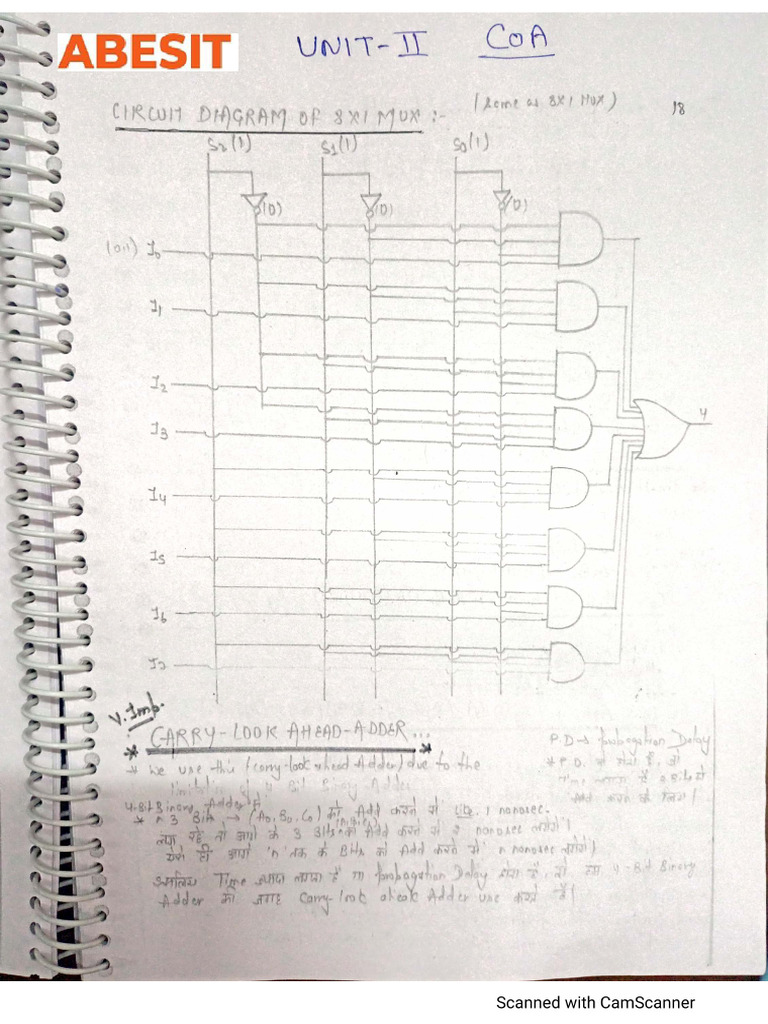 ABESIT
UNIT-II COA
CIRCUIT DIAGRAM OF 8X1 MUX :- (same as 8X1 MUX) 18
S2(1) S1(1) S0(1)
(0) (0) (0)
(011) I0
I1
I2
I3
Y
I4
I5
I6
I7
V.Imp.
* CARRY-LOOK AHEAD-ADDER... *
P.D → Propagation Delay
* We use this (carry-look ahead Adder) due to the
limitation of 4 Bit Binary Adder
* P.D.
4-Bit Binary Adder में
* 3 Bits → (A0, B0, C0) को Add करने में Like 1 nanosec.
लग रहे तो आगे के 3 Bits को Add करने में 2 nanosec लगेंगे।
ऐसे ही आगे 'n' तक के Bits को Add करने में n nanosec लगेंगे।
इसलिए Time ज्यादा लगता है या Propagation Delay होता है, तो हम 4-Bit Binary
Adder की जगह Carry-look ahead Adder use करते हैं।
Scanned with CamScanner